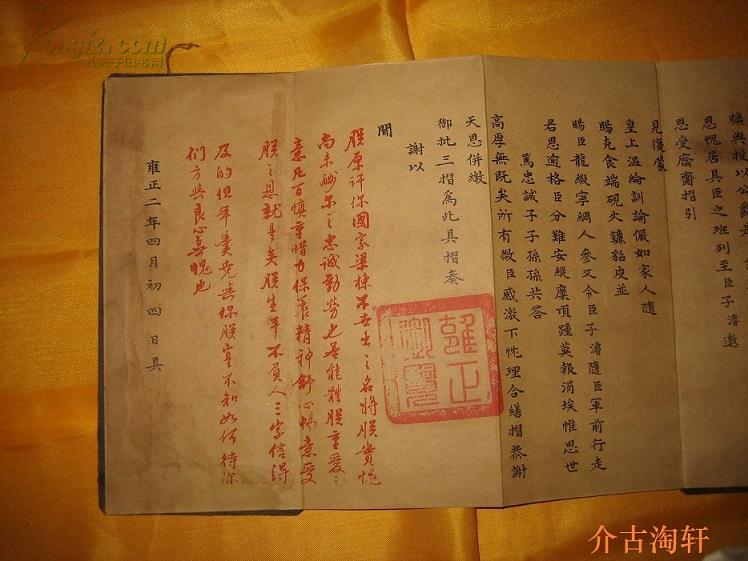 恩愧居具臣之班列至臣子濬邀
恩受廕齎招引
見復蒙
皇上温綸訓諭儼如家人隨
賜克食端硯火鐮貂皮並
賜臣龍緞寧綢人參又令臣子濬隨臣軍前行走
君恩逾格臣分難安縱糜頂踵莫報涓埃惟思世
篤忠誠子子孫孫共答
高厚無既矣所有微臣感激下忱理合繕摺恭謝
天恩併繳
御批三摺為此具摺奏
謝以
聞
朕原許你國家梁棟不世出之名將朕實愧
尚未酬尔之忠誠勤勞也若能體朕重愛之
意凡百慎重惜力保養精神舒心暢意受
朕之恩就是矣朕生平不負人三字信得
及的但年羹堯與你朕實不知如何待你
們方與良心無愧也
雍正二年四月初四日具
雍正御覽
Kongfz.com
孔夫子旧书网
介古淘轩